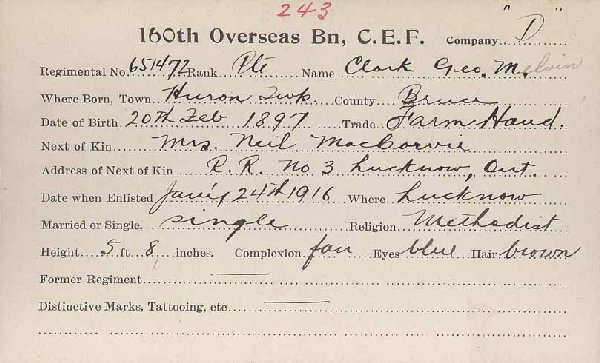 243
160th Overseas Bn, C.E.F. Company "D"
Regimental No. 651472 Rank Pte Name Clark Geo. Melvin
Where Born, Town Huron Twp. County Bruce
Date of Birth 20th Feb 1897 Trade Farm Hand.
Next of Kin Mrs. Neil
Address of Next of Kin R. R. No 3 Lucknow, Ont.
Date when Enlisted Jan'y 24th 1916 Where Lucknow
Married or Single. single Religion Methodist
Height 5 ft 8 inches. Complexion fair Eyes blue Hair brown
Former Regiment
Distinctive Marks, Tattooing, etc